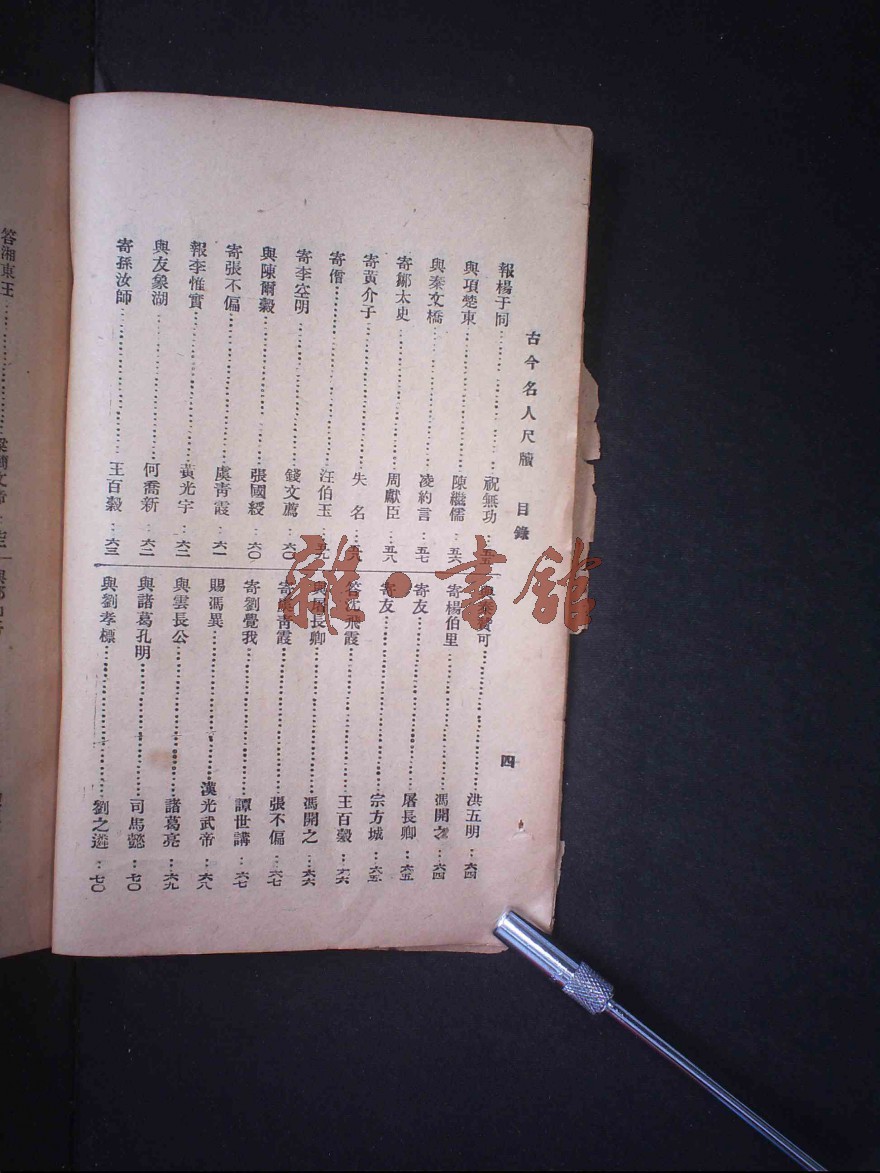 古今名人尺牘 目錄 四
報楊于同 祝無功
與項楚東 陳繼儒 五六
與秦文橋 凌約言 五七
寄鄒太史 周獻臣 五八
寄黃介子 失名
寄僧 汪伯玉 五九
寄李空明 錢文薦 六〇
與陳爾穀 張國綬 六〇
寄張不偏 虞青霞 六一
報李惟實 黃光宇 六二
與友象湖 何喬新 六二
寄孫汝師 王百穀 六三
洪五明 六四
寄楊伯里 馮開之 六四
寄友 屠長卿 六五
寄友 宗方城 六五
答沈飛霞 王百穀 六六
與屠長卿 馮開之 六六
寄虞青霞 張不偏 六七
寄劉覺我 譚世講 六七
賜馮異 漢光武帝 六八
與雲長公 諸葛亮 六九
與諸葛孔明 司馬懿 七〇
與劉孝標 劉之遴 七〇
答湘東王
雜·書館